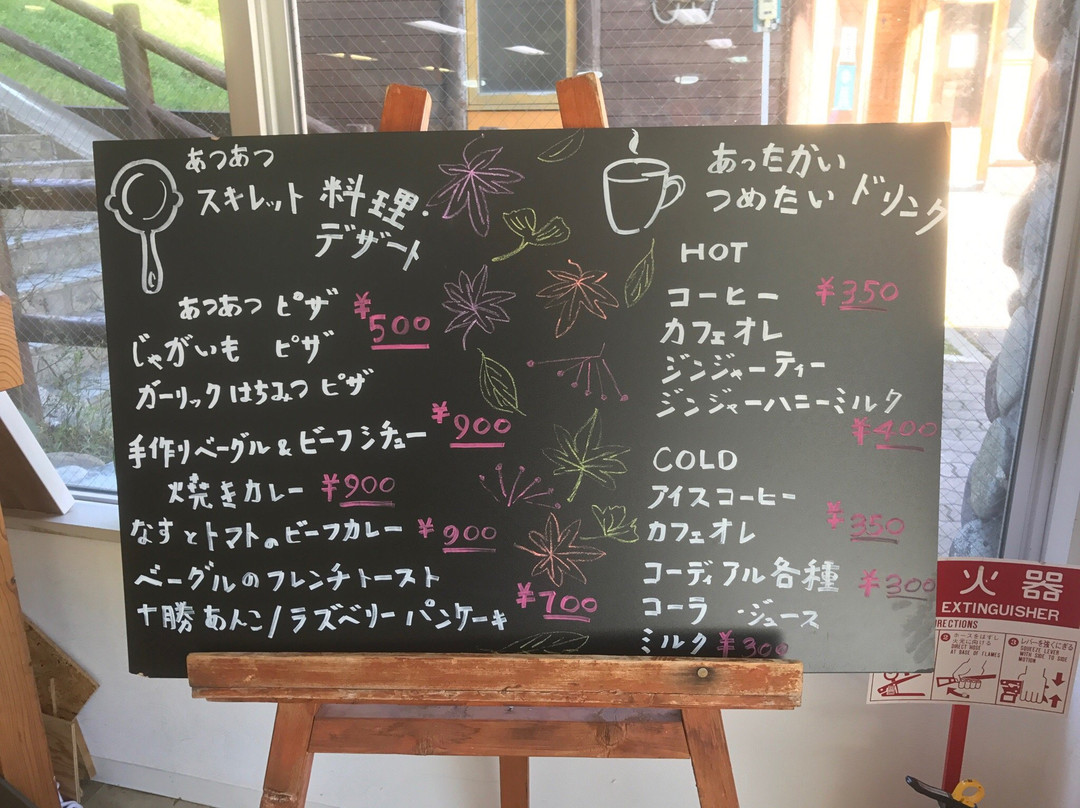 あつあつ
スキレット 料理・
デザート
あつあつ ピザ ¥500
じゃがいも ピザ
ガーリックはちみつピザ
手作りベーグル&ビーフシチュー ¥900
焼きカレー ¥900
なすとトマトのビーフカレー ¥900
ベーグルのフレンチトースト
十勝あんこ/ラズベリーパンケーキ ¥700
あったかい
つめたい ドリンク
HOT
コーヒー ¥350
カフェオレ
ジンジャーティー
ジンジャーハニーミルク
¥400
COLD
アイスコーヒー
カフェオレ ¥350
コーディアル各種 ¥300
コーラ ・ジュース
ミルク ¥300
火 器
EXTINGUISHER
RECTIONS
② ホースをはずし
火に向ける
DIRECT HOSE
AT BASE OF FLAMES
③ レバーを強くにぎる
SQUEEZE LEVER
WITH SIDE TO SIDE
MOTION